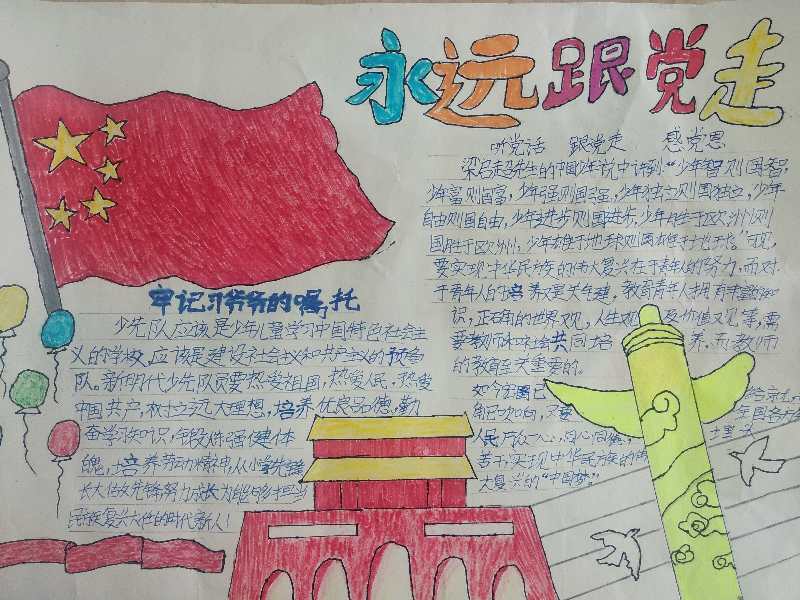 永远跟党走
听党话 跟党走 感党恩
梁启超先生的中国少年说中讲到:"少年智则国智,
少年富则国富,少年强则国强,少年独立则国独立,少年
自由则国自由,少年进步则国进步,少年胜于欧洲则
国胜于欧洲,少年雄于地球则国雄于地球"可见,
要实现中华民族的伟大复兴在于青年人的努力,而对
于青年人的培养又至关重要,教育青年人拥有丰富的知
识,正确的世界观,人生观,及价值观等,需
要教师和社会共同培养,而教师
的教育至关重要的。
如今
人民万众一心,同心同德,
苦干实现中华民族的伟
大复兴的"中国梦"
牢记习爷爷的嘱托
少先队应该是少年儿童学习中国特色社会主
义的学校,应该是建设社会主义和共产主义的预备
队。新时代少先队员要热爱祖国,热爱人民,热爱
中国共产,树立远大理想,培养优良品德,勤
奋学习知识,锻炼强健体
魄,培养劳动精神,从小学先锋
长大做先锋努力成长为能够担当
民族复兴大任的时代新人!